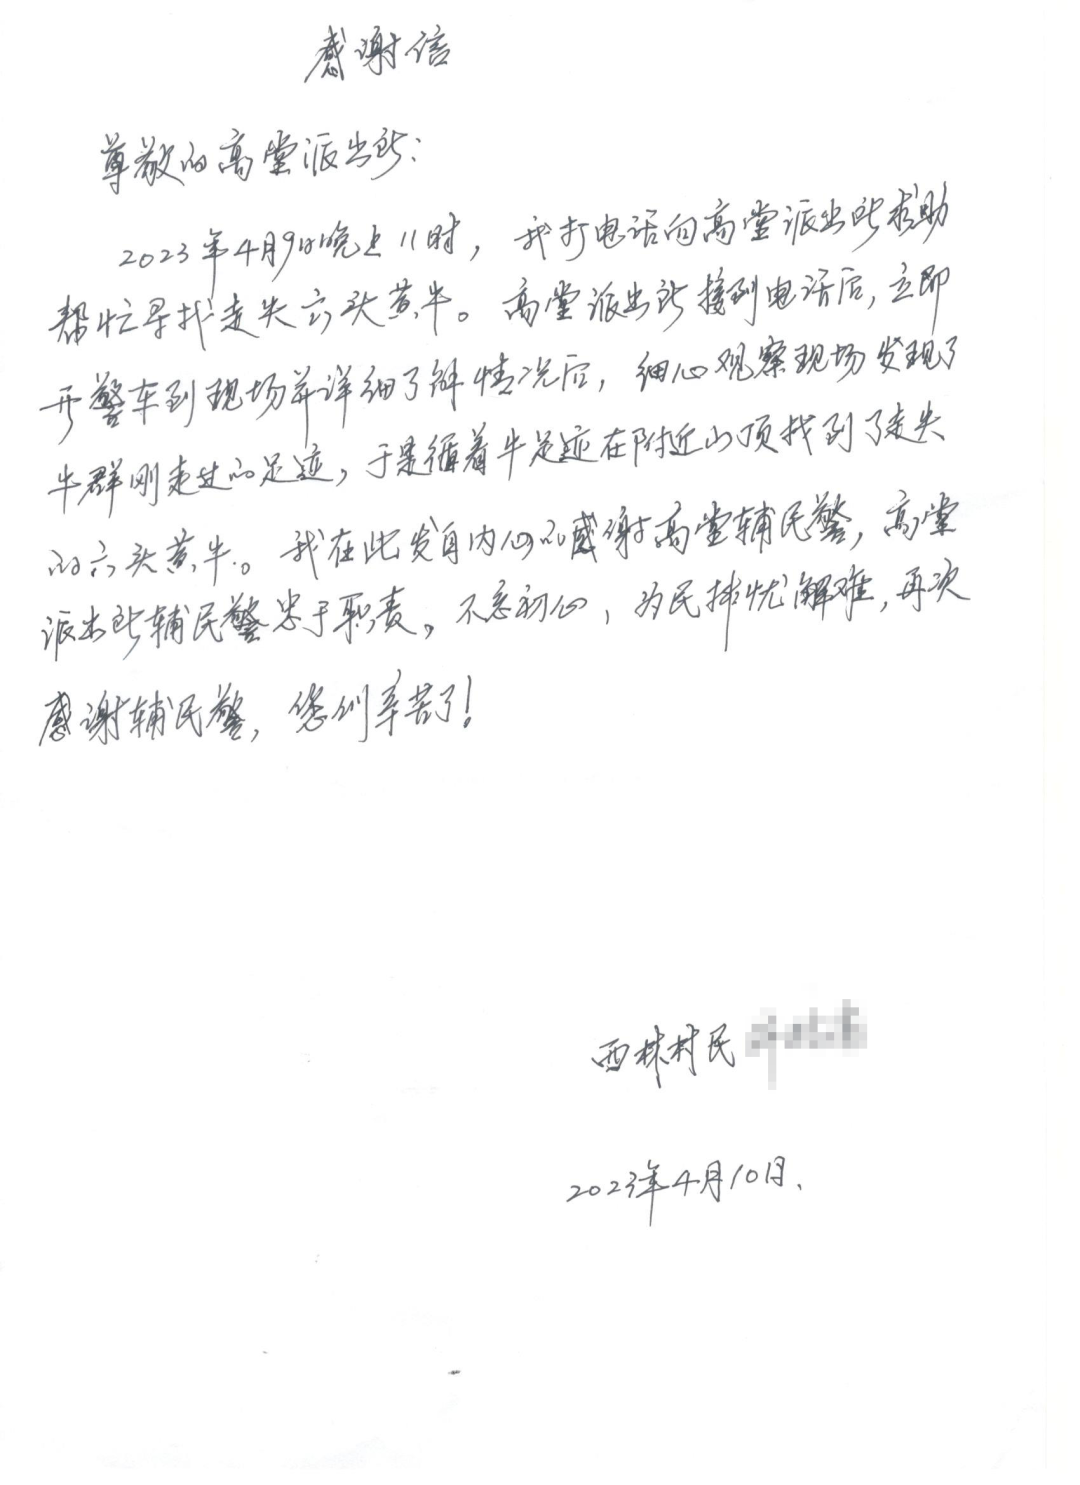 感谢信
尊敬的高堂派出所：
2023年4月9日晚上11时，我打电话向高堂派出所求助
帮忙寻找走失六头黄牛。高堂派出所接到电话后，立即
开警车到现场并详细了解情况后，细心观察现场发现了
牛群刚走过的足迹，于是循着牛足迹在附近山顶找到了走失
的六头黄牛。我在此发自内心的感谢高堂辅民警，高堂
派出所辅民警忠于职责，不忘初心，为民排忧解难，再次
感谢辅民警，您们辛苦了！
西林村民
2023年4月10日、